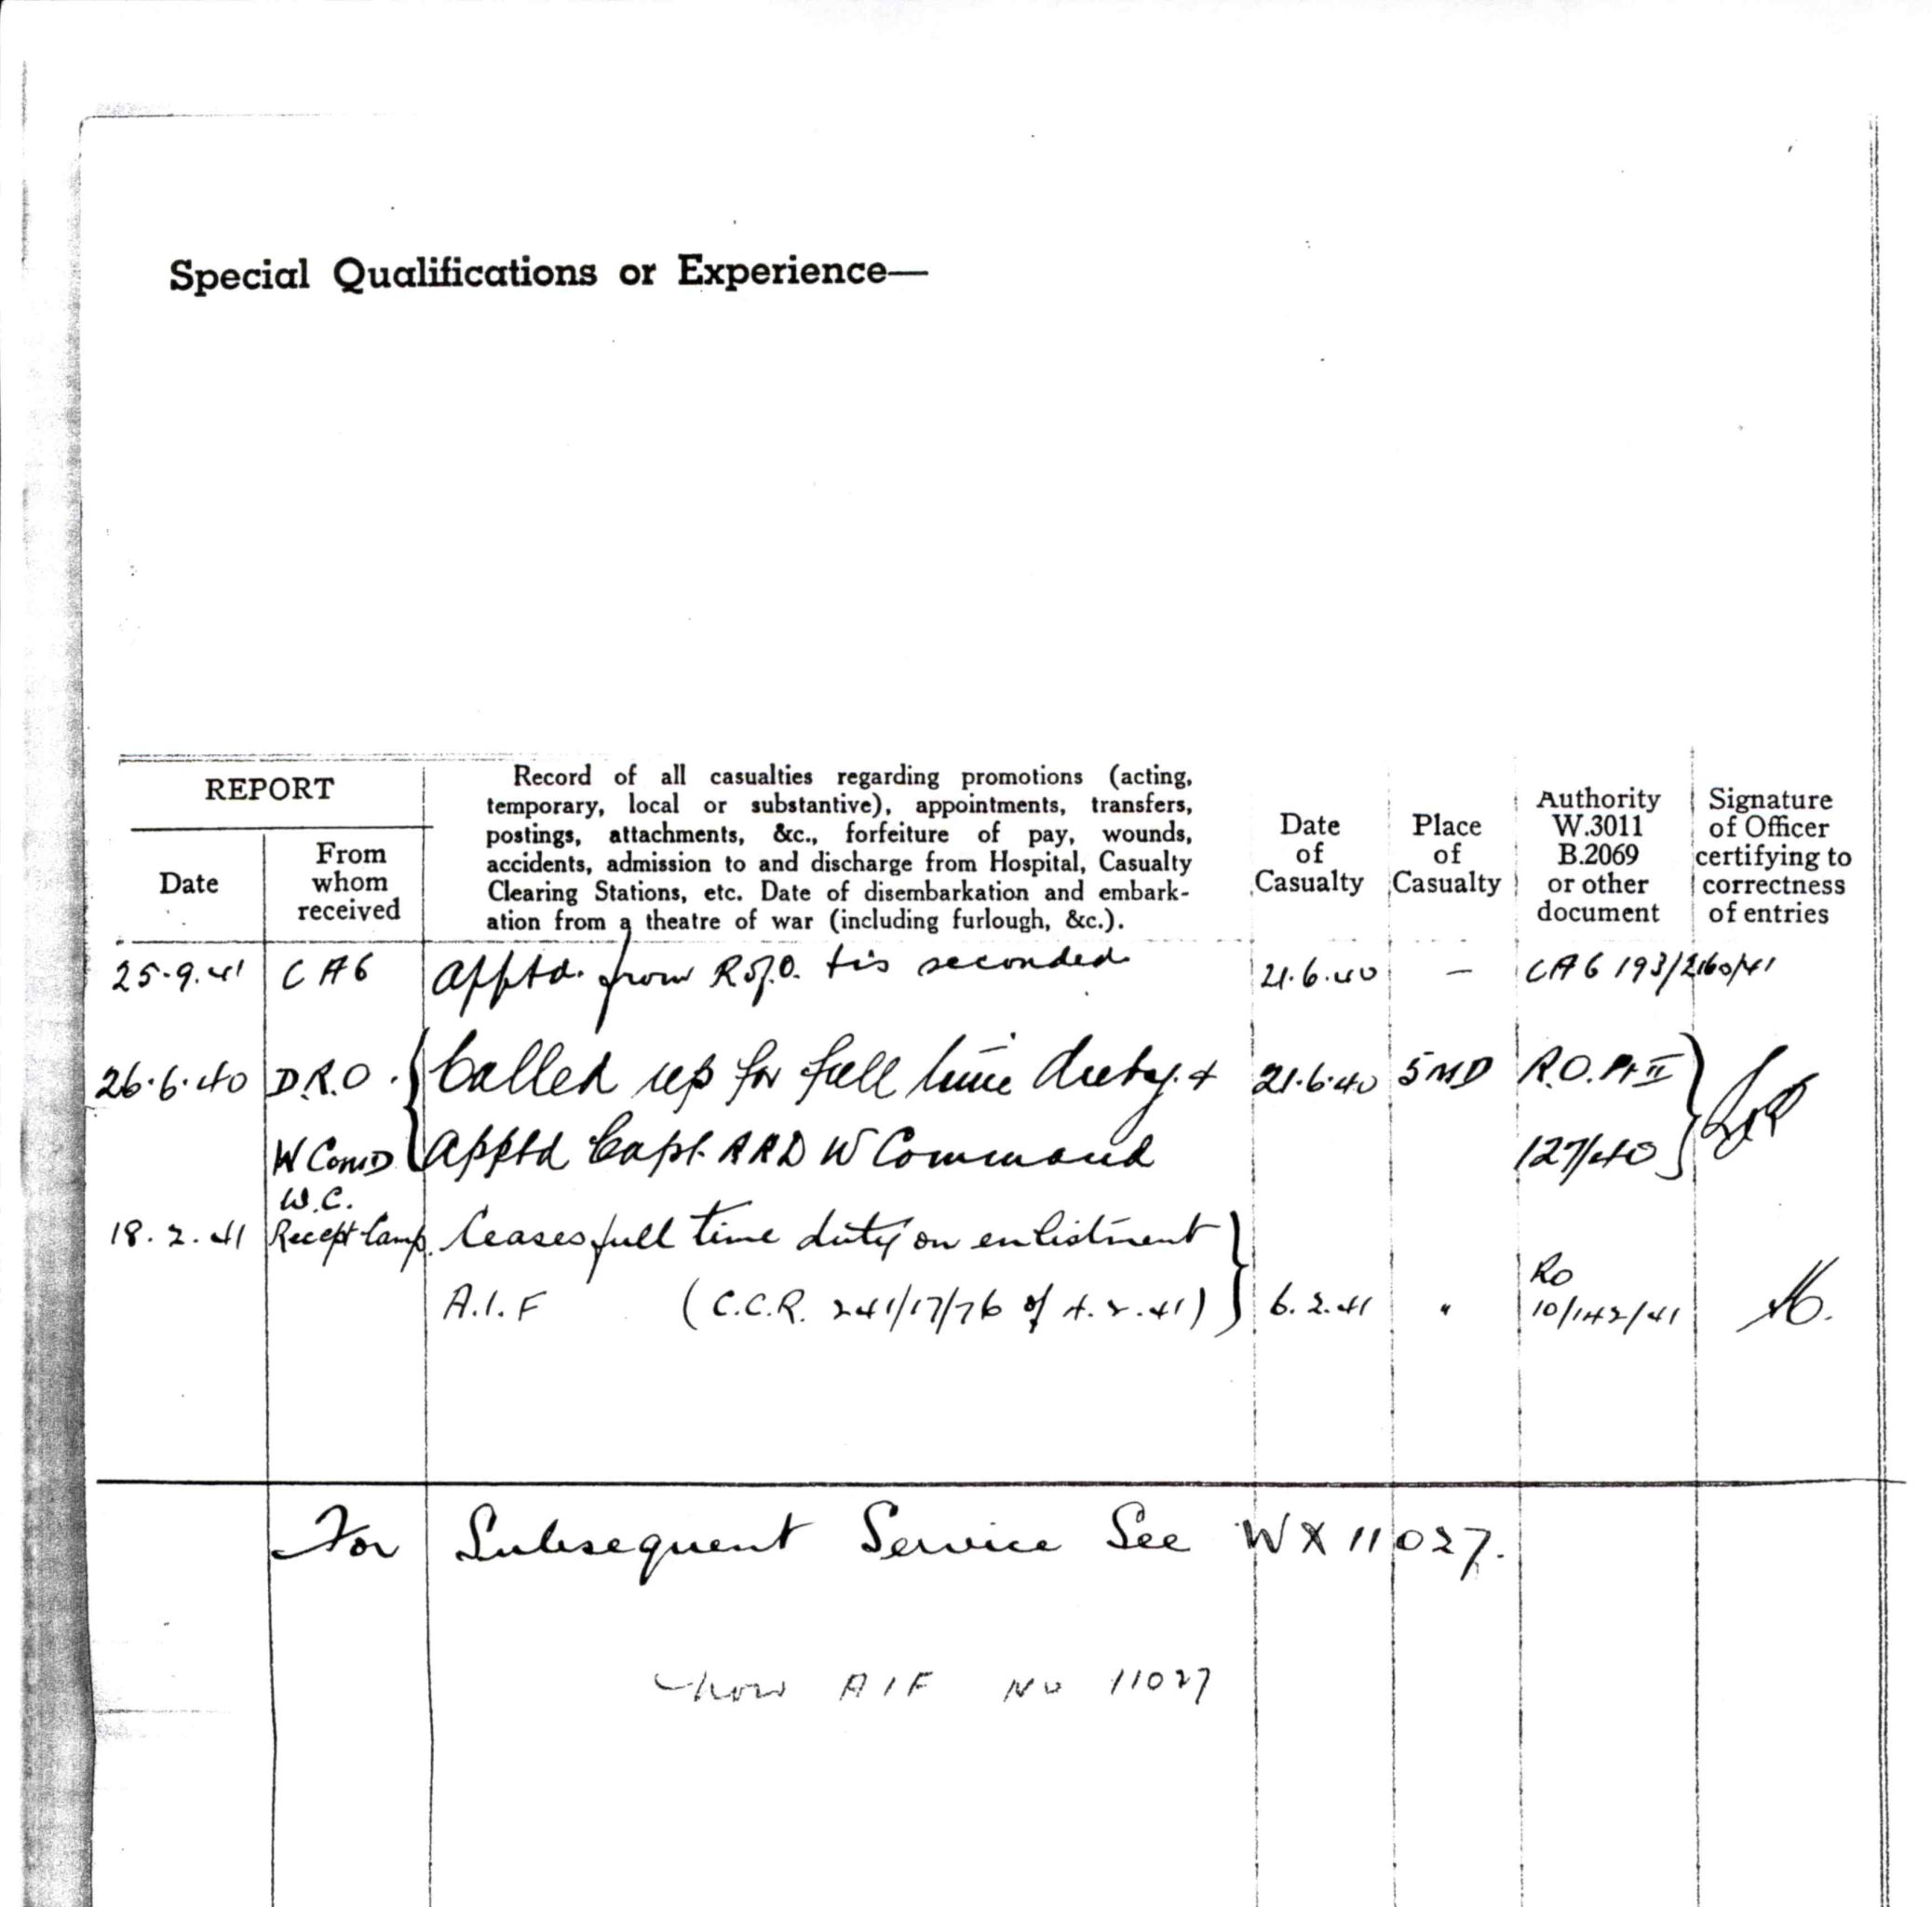 Special Qualifications or Experience—
REPORT
Date
From
whom
received
Record of all casualties regarding promotions (acting,
temporary, local or substantive), appointments, transfers,
postings, attachments, &c., forfeiture of pay, wounds,
accidents, admission to and discharge from Hospital, Casualty
Clearing Stations, etc. Date of disembarkation and embark-
ation from a theatre of war (including furlough, &c.).
Date
of
Casualty
Place
of
Casualty
Authority
W.3011
B.2069
or other
document
Signature
of Officer
certifying to
correctness
of entries
25.9.41 CAG apptd. from R of O. & is seconded 21.6.40 — CAG 193/2160/41
26.6.40 D.R.O. Called up for full time duty & 21.6.40 5MD R.O. Pt II
W ComD apptd Capt. AAD W Command 127/40
W.C.
18.2.41 Recept Camp. Ceases full time duty on enlistment
A.I.F (C.C.R. 241/17/76 of 4.2.41) 6.2.41 " RO
10/142/41
For Subsequent Service See WX 11027.
now AIF No 11027